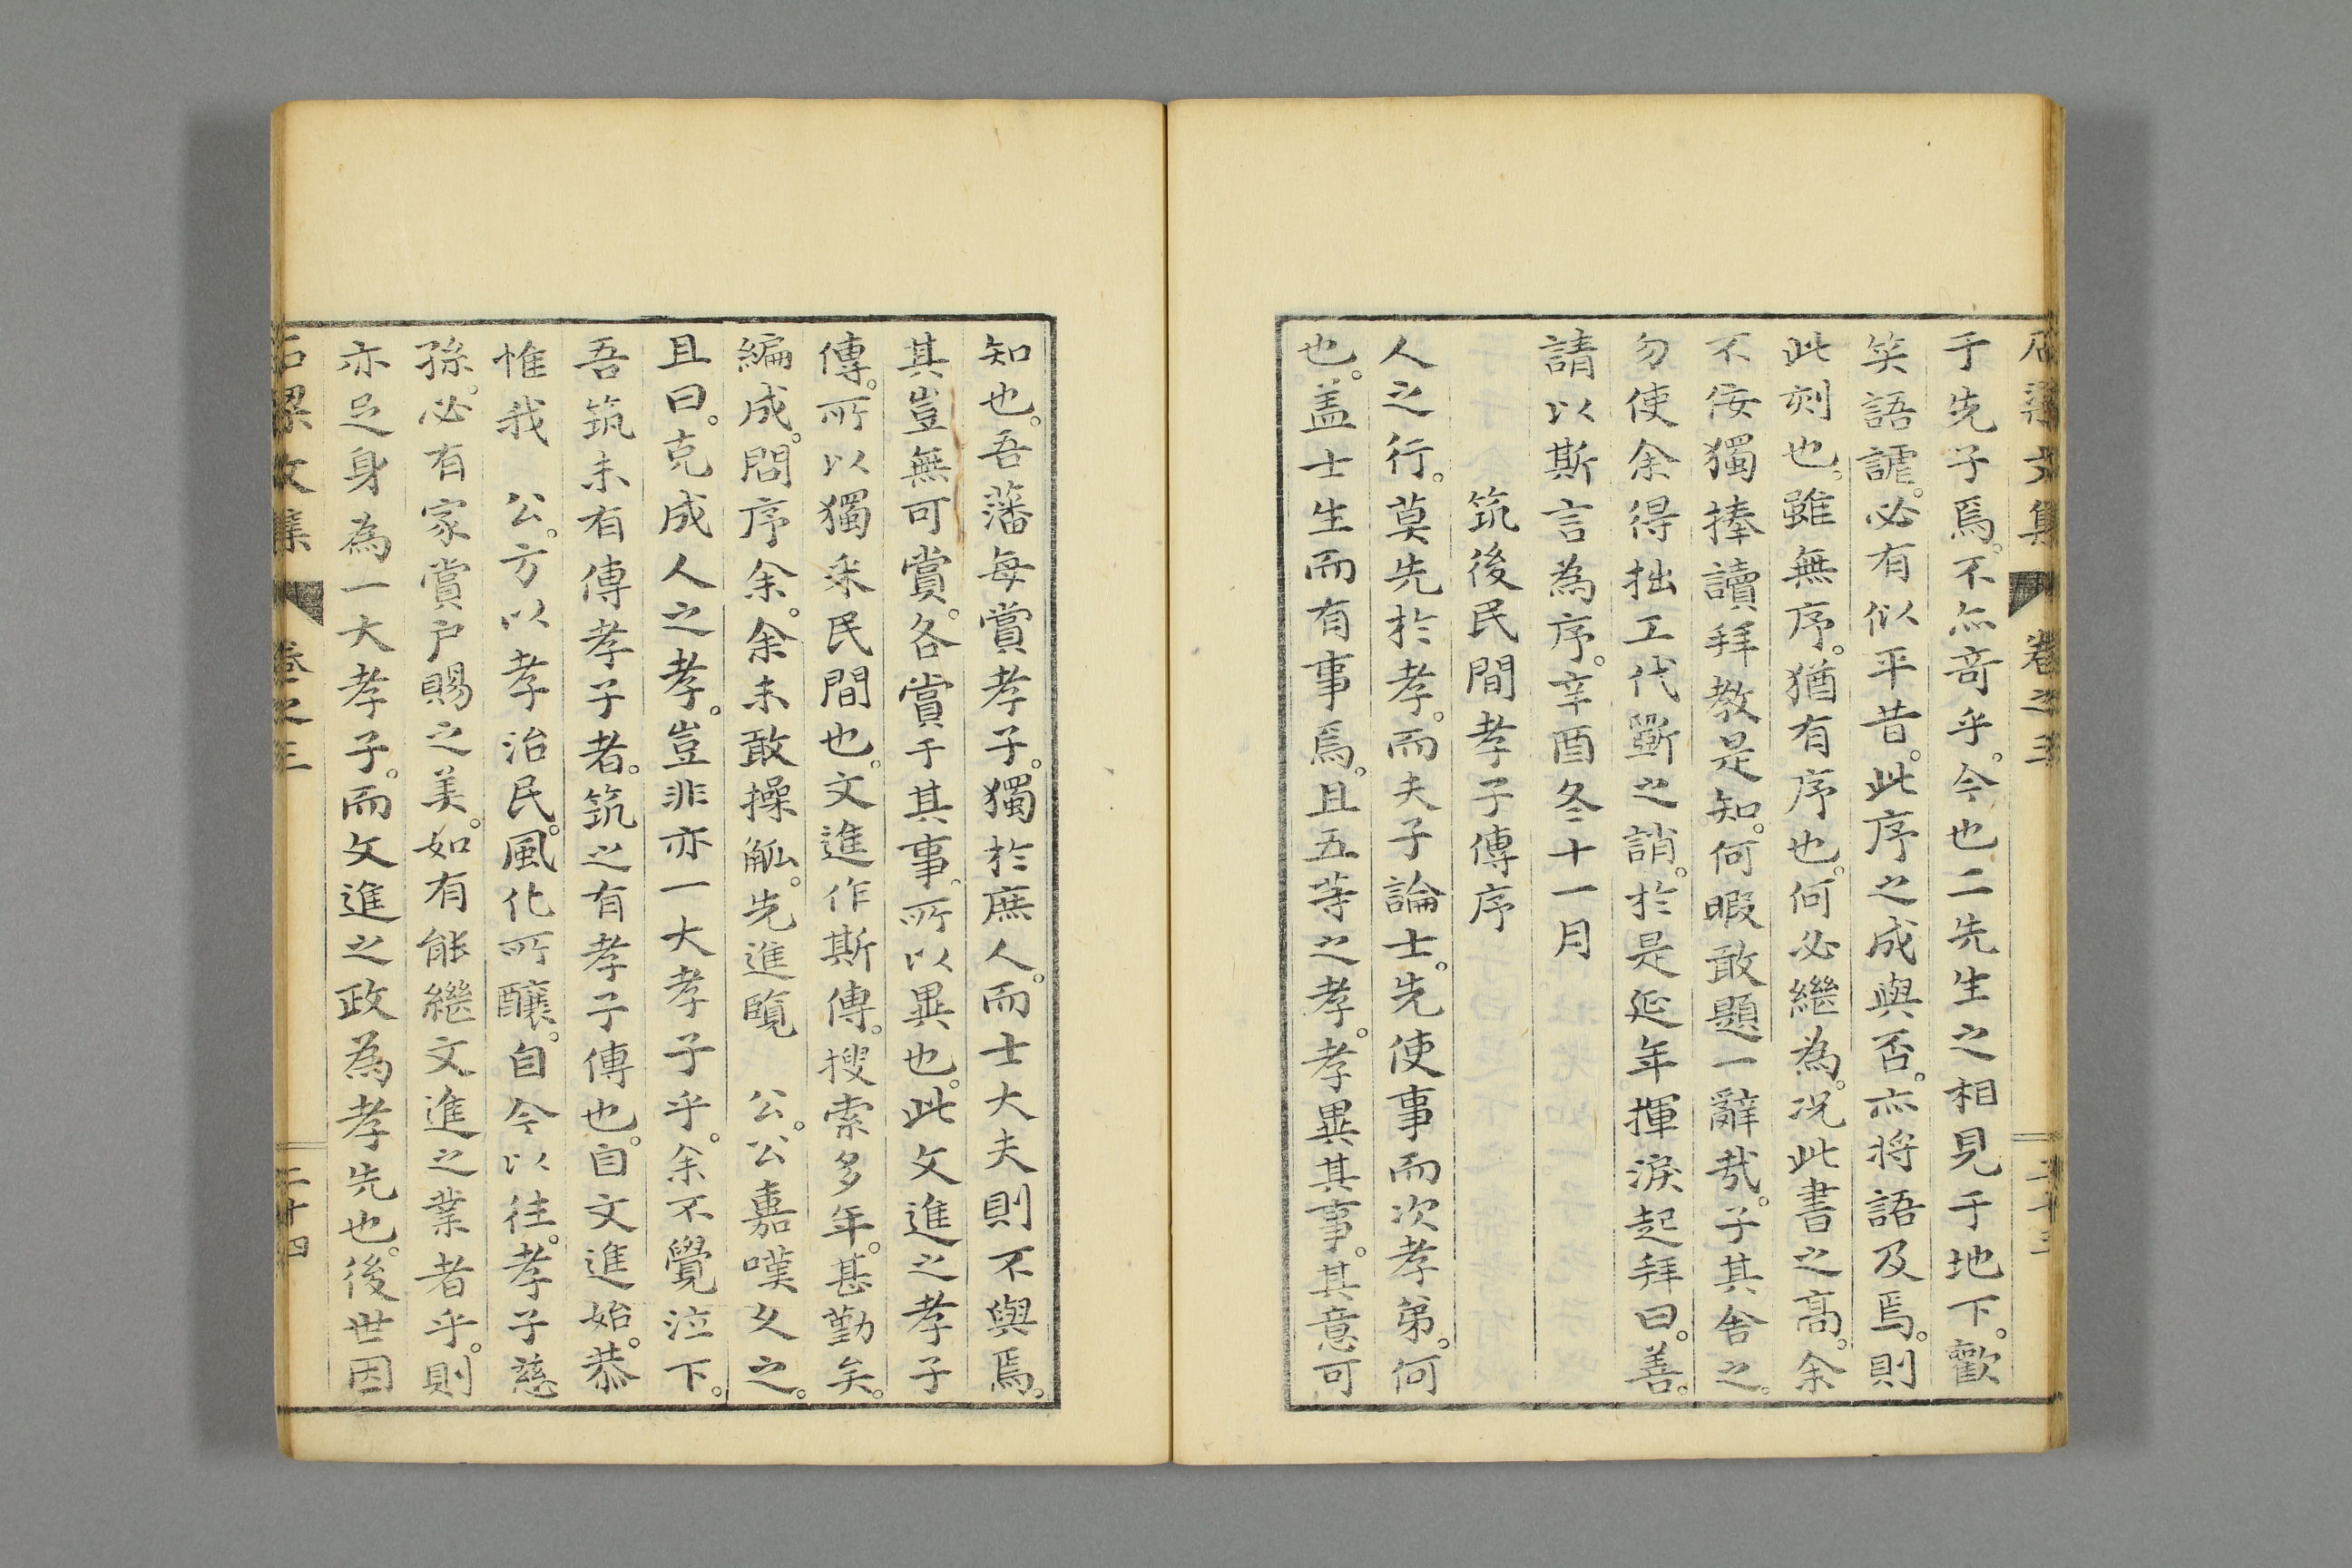 石梁文集 卷之三 二十三
于先子焉。不亦奇乎。今也二先生之相見于地下。歡
笑語謔。必有似平昔。此序之成與否。亦將語及焉。則
此刻也。雖無序。猶有序也。何必繼為。况此書之高。余
不佞獨捧讀拜教是知。何暇敢題一辭哉。子其舍之。
勿使余得拙工代斲之誚。於是延年揮淚起拜曰。善。
請以斯言為序。辛酉冬十一月
筑後民間孝子傳序
人之行。莫先於孝。而夫子論士。先使事而次孝弟。何
也。盖士生而有事焉。且五等之孝。孝異其事。其意可
知也。吾藩每賞孝子。獨於庶人。而士大夫則不與焉。
其豈無可賞。各賞于其事。所以異也。此文進之孝子
傳。所以獨采民間也。文進作斯傳。搜索多年。甚勤矣。
編成。問序余。余未敢操觚。先進覽 公。公嘉嘆久之。
且曰。克成人之孝。豈非亦一大孝子乎。余不覺泣下。
吾筑未有傳孝子者。筑之有孝子傳也。自文進始。恭
惟我 公。方以孝治民。風化所釀。自今以往。孝子慈
孫。必有家賞戶賜之美。如有能繼文進之業者乎。則
亦足身為一大孝子。而文進之政為孝先也。後世因
石梁文集 卷之三 二十四